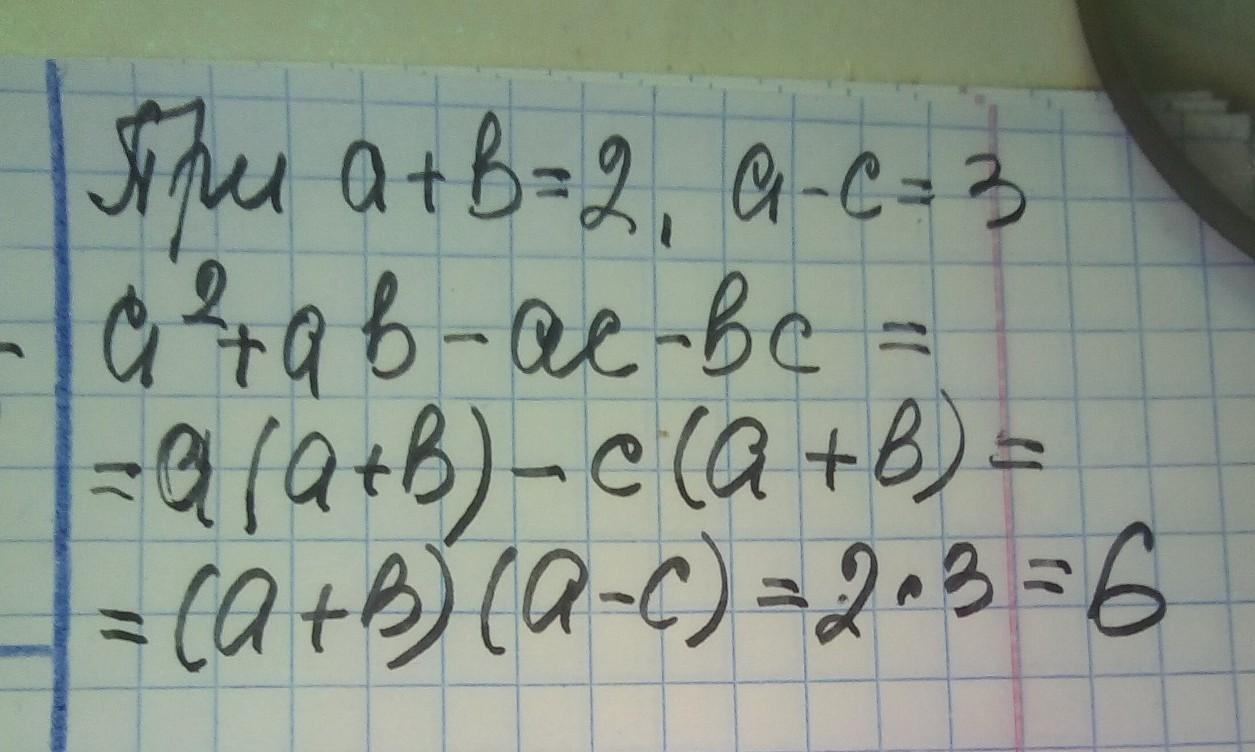 При a+b=2, a-c=3
a²+ab-ac-bc=
=a(a+b)-c(a+b)=
=(a+b)(a-c)=2·3=6